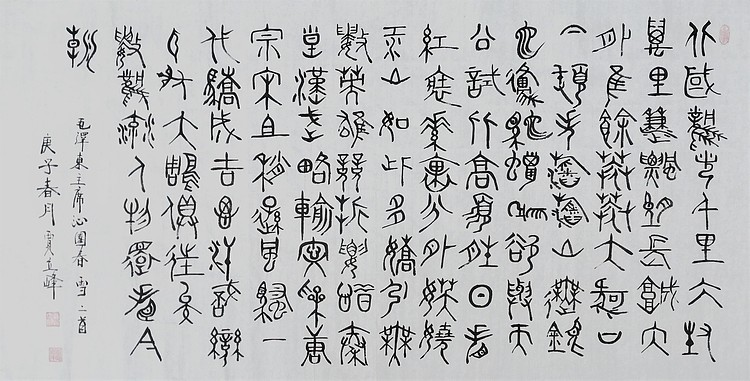 北國風光千里冰封
萬里雪飄望長城內
外惟餘莽莽大河上
下頓失滔滔山舞銀
蛇原馳蠟象欲與天
公試比高須晴日看
紅裝素裹分外妖嬈
江山如此多嬌引無
數英雄競折腰惜秦
皇漢武略輸文采唐
宗宋祖稍遜風騷一
代驕成吉思汗識彎
弓射大鵰俱往矣
數風流人物還看今
朝
毛澤東主席沁園春雪之首
庚子春月賈立峰